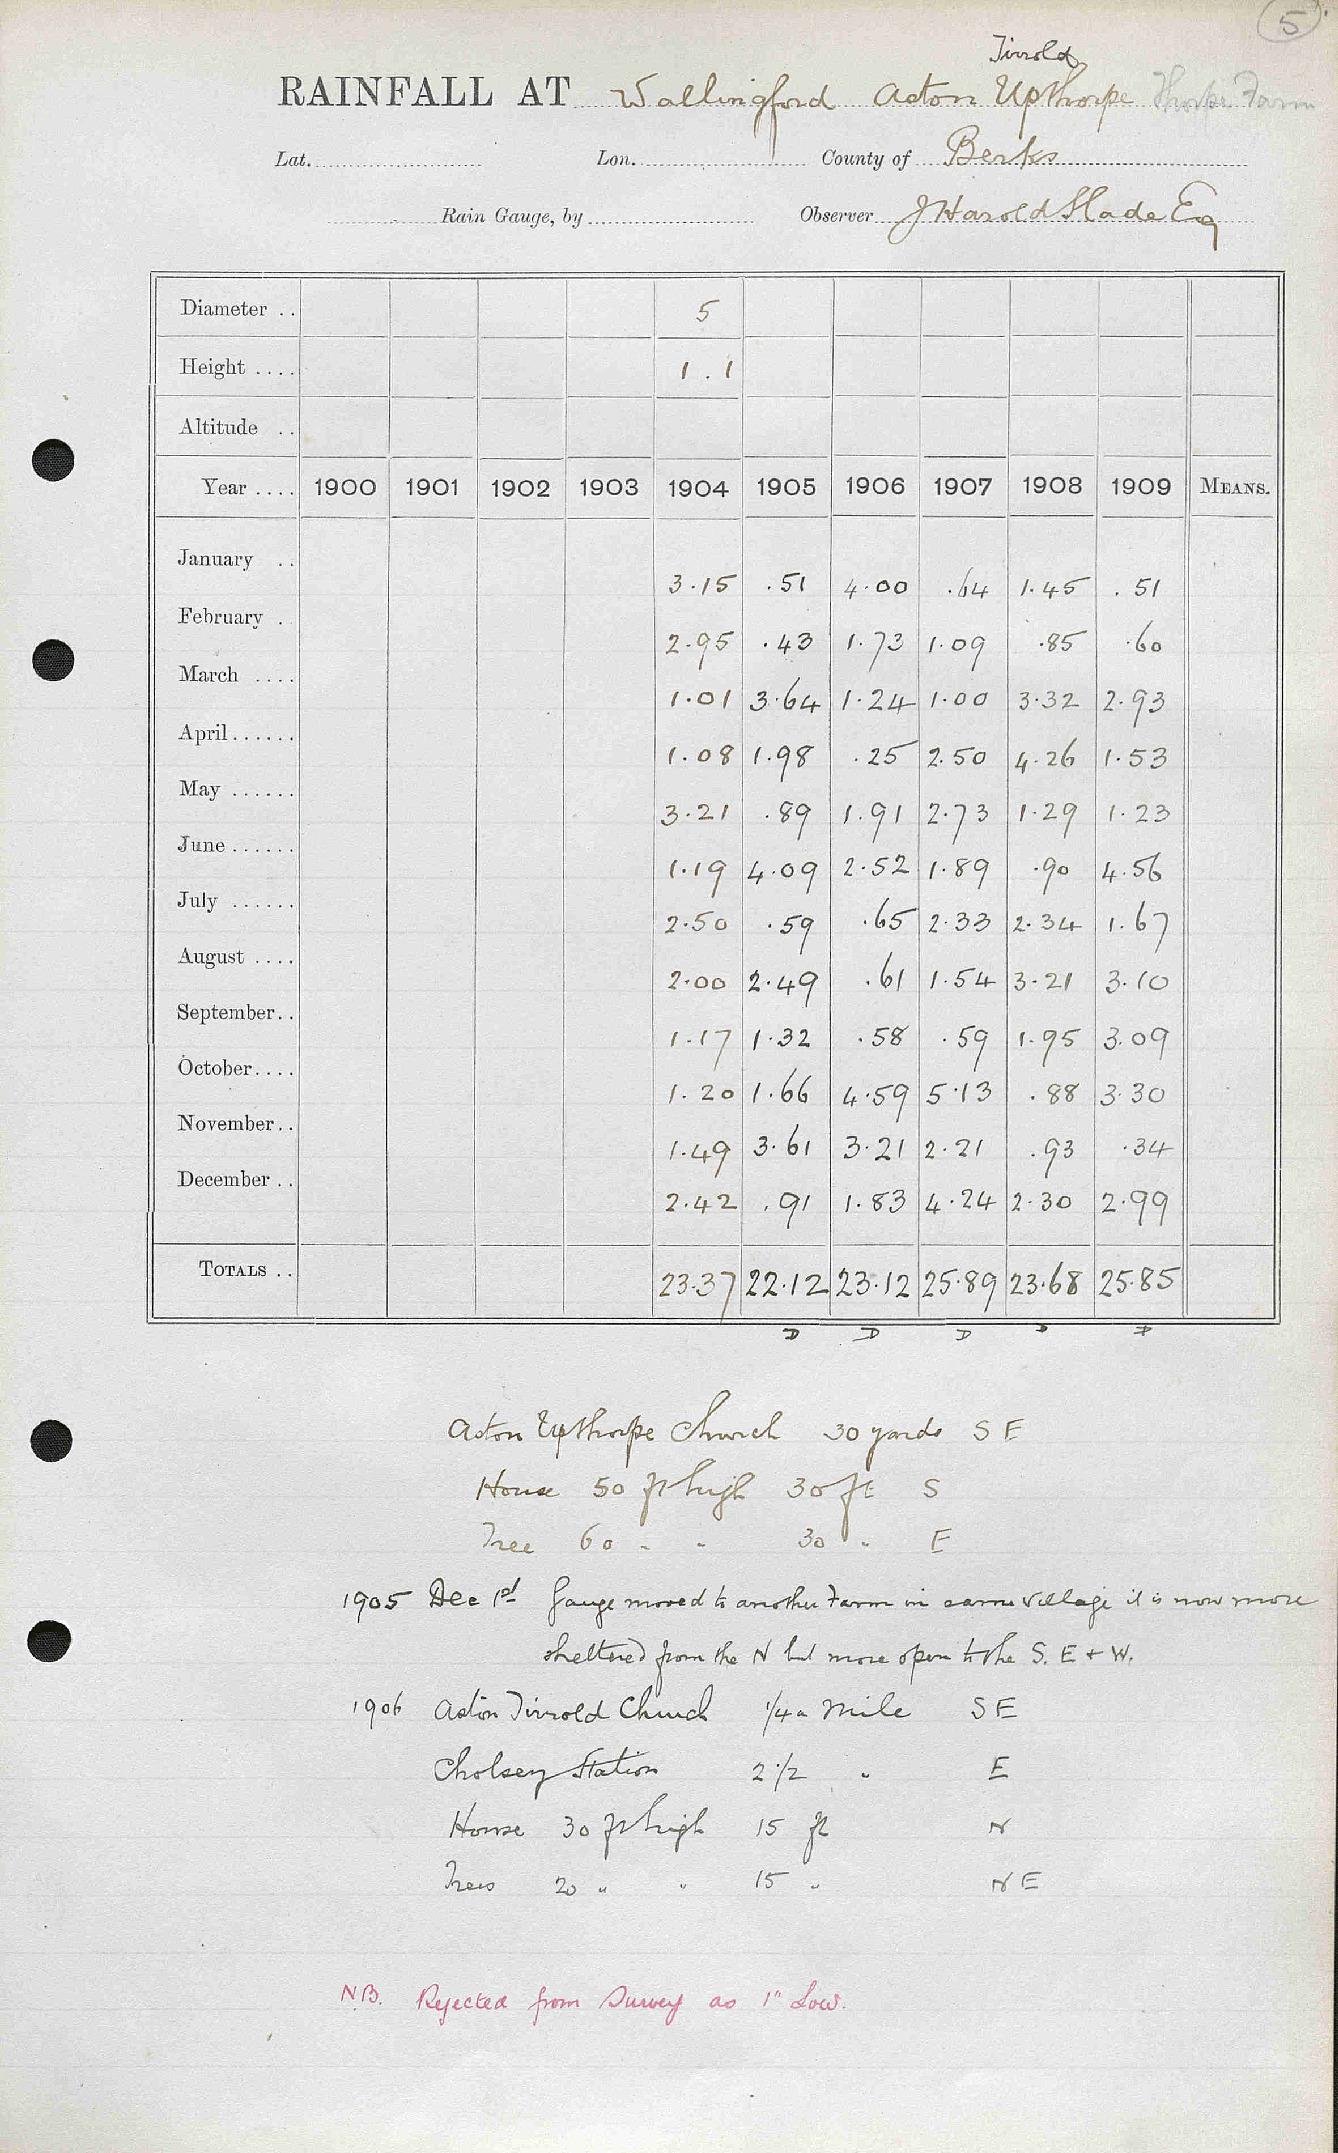 5
Tirrold
RAINFALL AT Wallingford Aston Upthorpe Thorpe Farm
Lat. Lon. County of Berks
Rain Gauge, by Observer J Harold Slade Esq
Diameter .. 5
Height .... 1.1
Altitude ..
Year .... 1900 1901 1902 1903 1904 1905 1906 1907 1908 1909 MEANS.
January .. 3.15 .51 4.00 .64 1.45 .51
February . 2.95 .43 1.73 1.09 .85 .60
March .... 1.01 3.64 1.24 1.00 3.32 2.93
April...... 1.08 1.98 .25 2.50 4.26 1.53
May ...... 3.21 .89 1.91 2.73 1.29 1.23
June ...... 1.19 4.09 2.52 1.89 .90 4.56
July ...... 2.50 .59 .65 2.33 2.34 1.67
August .... 2.00 2.49 .61 1.54 3.21 3.10
September.. 1.17 1.32 .58 .59 1.95 3.09
October.... 1.20 1.66 4.59 5.13 .88 3.30
November.. 1.49 3.61 3.21 2.21 .93 .34
December .. 2.42 .91 1.83 4.24 2.30 2.99
TOTALS .. 23.37 22.12 23.12 25.89 23.68 25.85
D D D D D
Aston Upthorpe Church 30 yards S E
House 50 ft high 30 ft S
Tree 60 " " 30 " E
1905 Dec 1st Gauge moved to another Farm in same village it is now more
sheltered from the N but more open to the S. E + W.
1906 Aston Tirrold Church 1/4 a mile S E
Cholsey Station 2 1/2 " E
House 30 ft high 15 ft N
Trees 20 " " 15 " N E
N.B. Rejected from Survey as 1" Low.